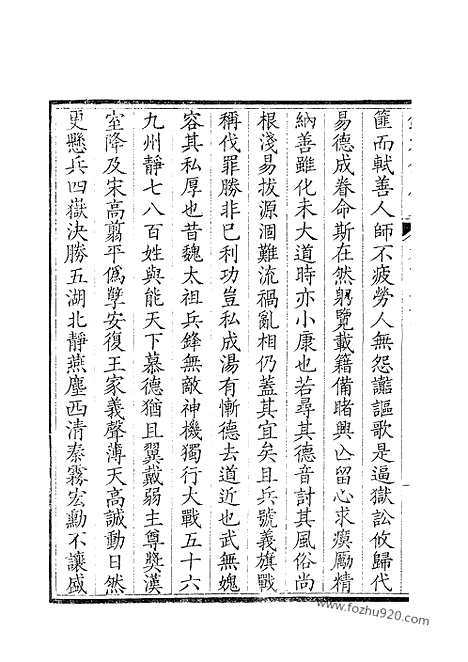 篚而軾善人師不疲勞人無怨讟謳歌是逼獄訟攸歸代
易德成眷命斯在然躬覽載籍備睹興亾留心求瘼勵精
納善雖化未大道時亦小康也若尋其德音討其風俗尚
根淺易拔源涸難流禍亂相仍蓋其宜矣且兵號義旗戰
稱伐罪勝非巳利功豈私成湯有慚德去道近也武無媿
容其私厚也昔魏太祖兵鋒無敵神機獨行大戰五十六
九州靜七八百姓與能天下慕德猶且翼戴弱主尊獎漢
室降及宋高翦平僞孽安復王家義聲薄天高誠動日然
更懸兵四嶽決勝五湖北靜燕塵西清秦霧宏勳不讓盛
www.fozhu920.com